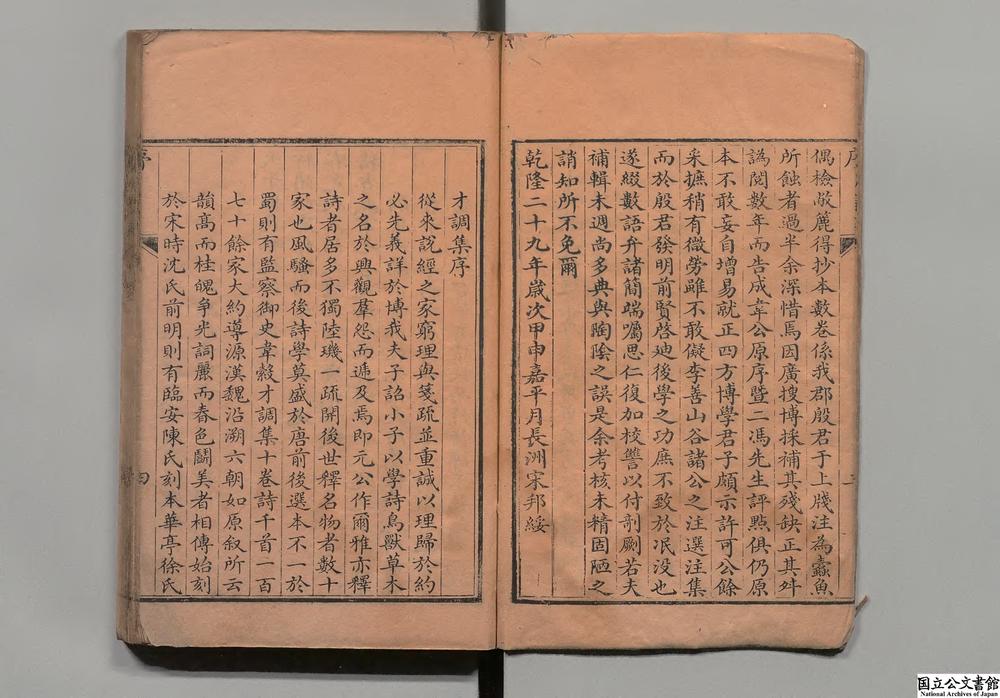 偶檢敝簏得抄本數卷係我郡殷君于上牋注為蠹魚
所蝕者過半余深惜焉因廣搜博採補其殘缺正其舛
譌閱數年而告成韋公原序暨二馮先生評點俱仍原
本不敢妄自增易就正四方博學君子頗示許可公餘
采摭稍有微勞雖不敢儗李善山谷諸公之注選注集
而於殷君發明前賢啓廸後學之功庶不致於泯没也
遂綴數語弁諸簡端囑思仁復加校讐以付剞劂若夫
補輯未週尚多典與陶陰之誤是余考核未精固陋之
誚知所不免爾
乾隆二十九年歲次甲申嘉平月長洲宋邦綏
才調集序
從來說經之家窮理與箋疏並重誠以理歸於約
必先義詳於博我夫子詔小子以學詩鳥獸草木
之名於興觀羣怨而遞及焉即元公作爾雅亦釋
詩者居多不獨陸璣一疏開後世釋名物者數十
家也風騷而後詩學莫盛於唐前後選本不一於
蜀則有監察御史韋縠才調集十卷詩千首一百
七十餘家大約導源漢魏沿溯六朝如原叙所云
韻高而桂魄争光詞麗而春色鬬美者相傳始刻
於宋時沈氏前明則有臨安陳氏刻本華亭徐氏
国立公文書館
National Archives of Japan